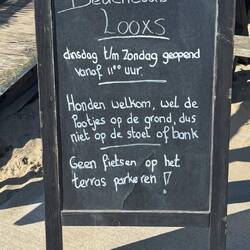 Beachclub
LOOXS
dinsdag t/m zondag geopend
vanaf 11⁰⁰ uur.
Honden welkom, wel de
Pootjes op de grond, dus
niet op de stoel of bank
Geen fietsen op het
terras parkeren !